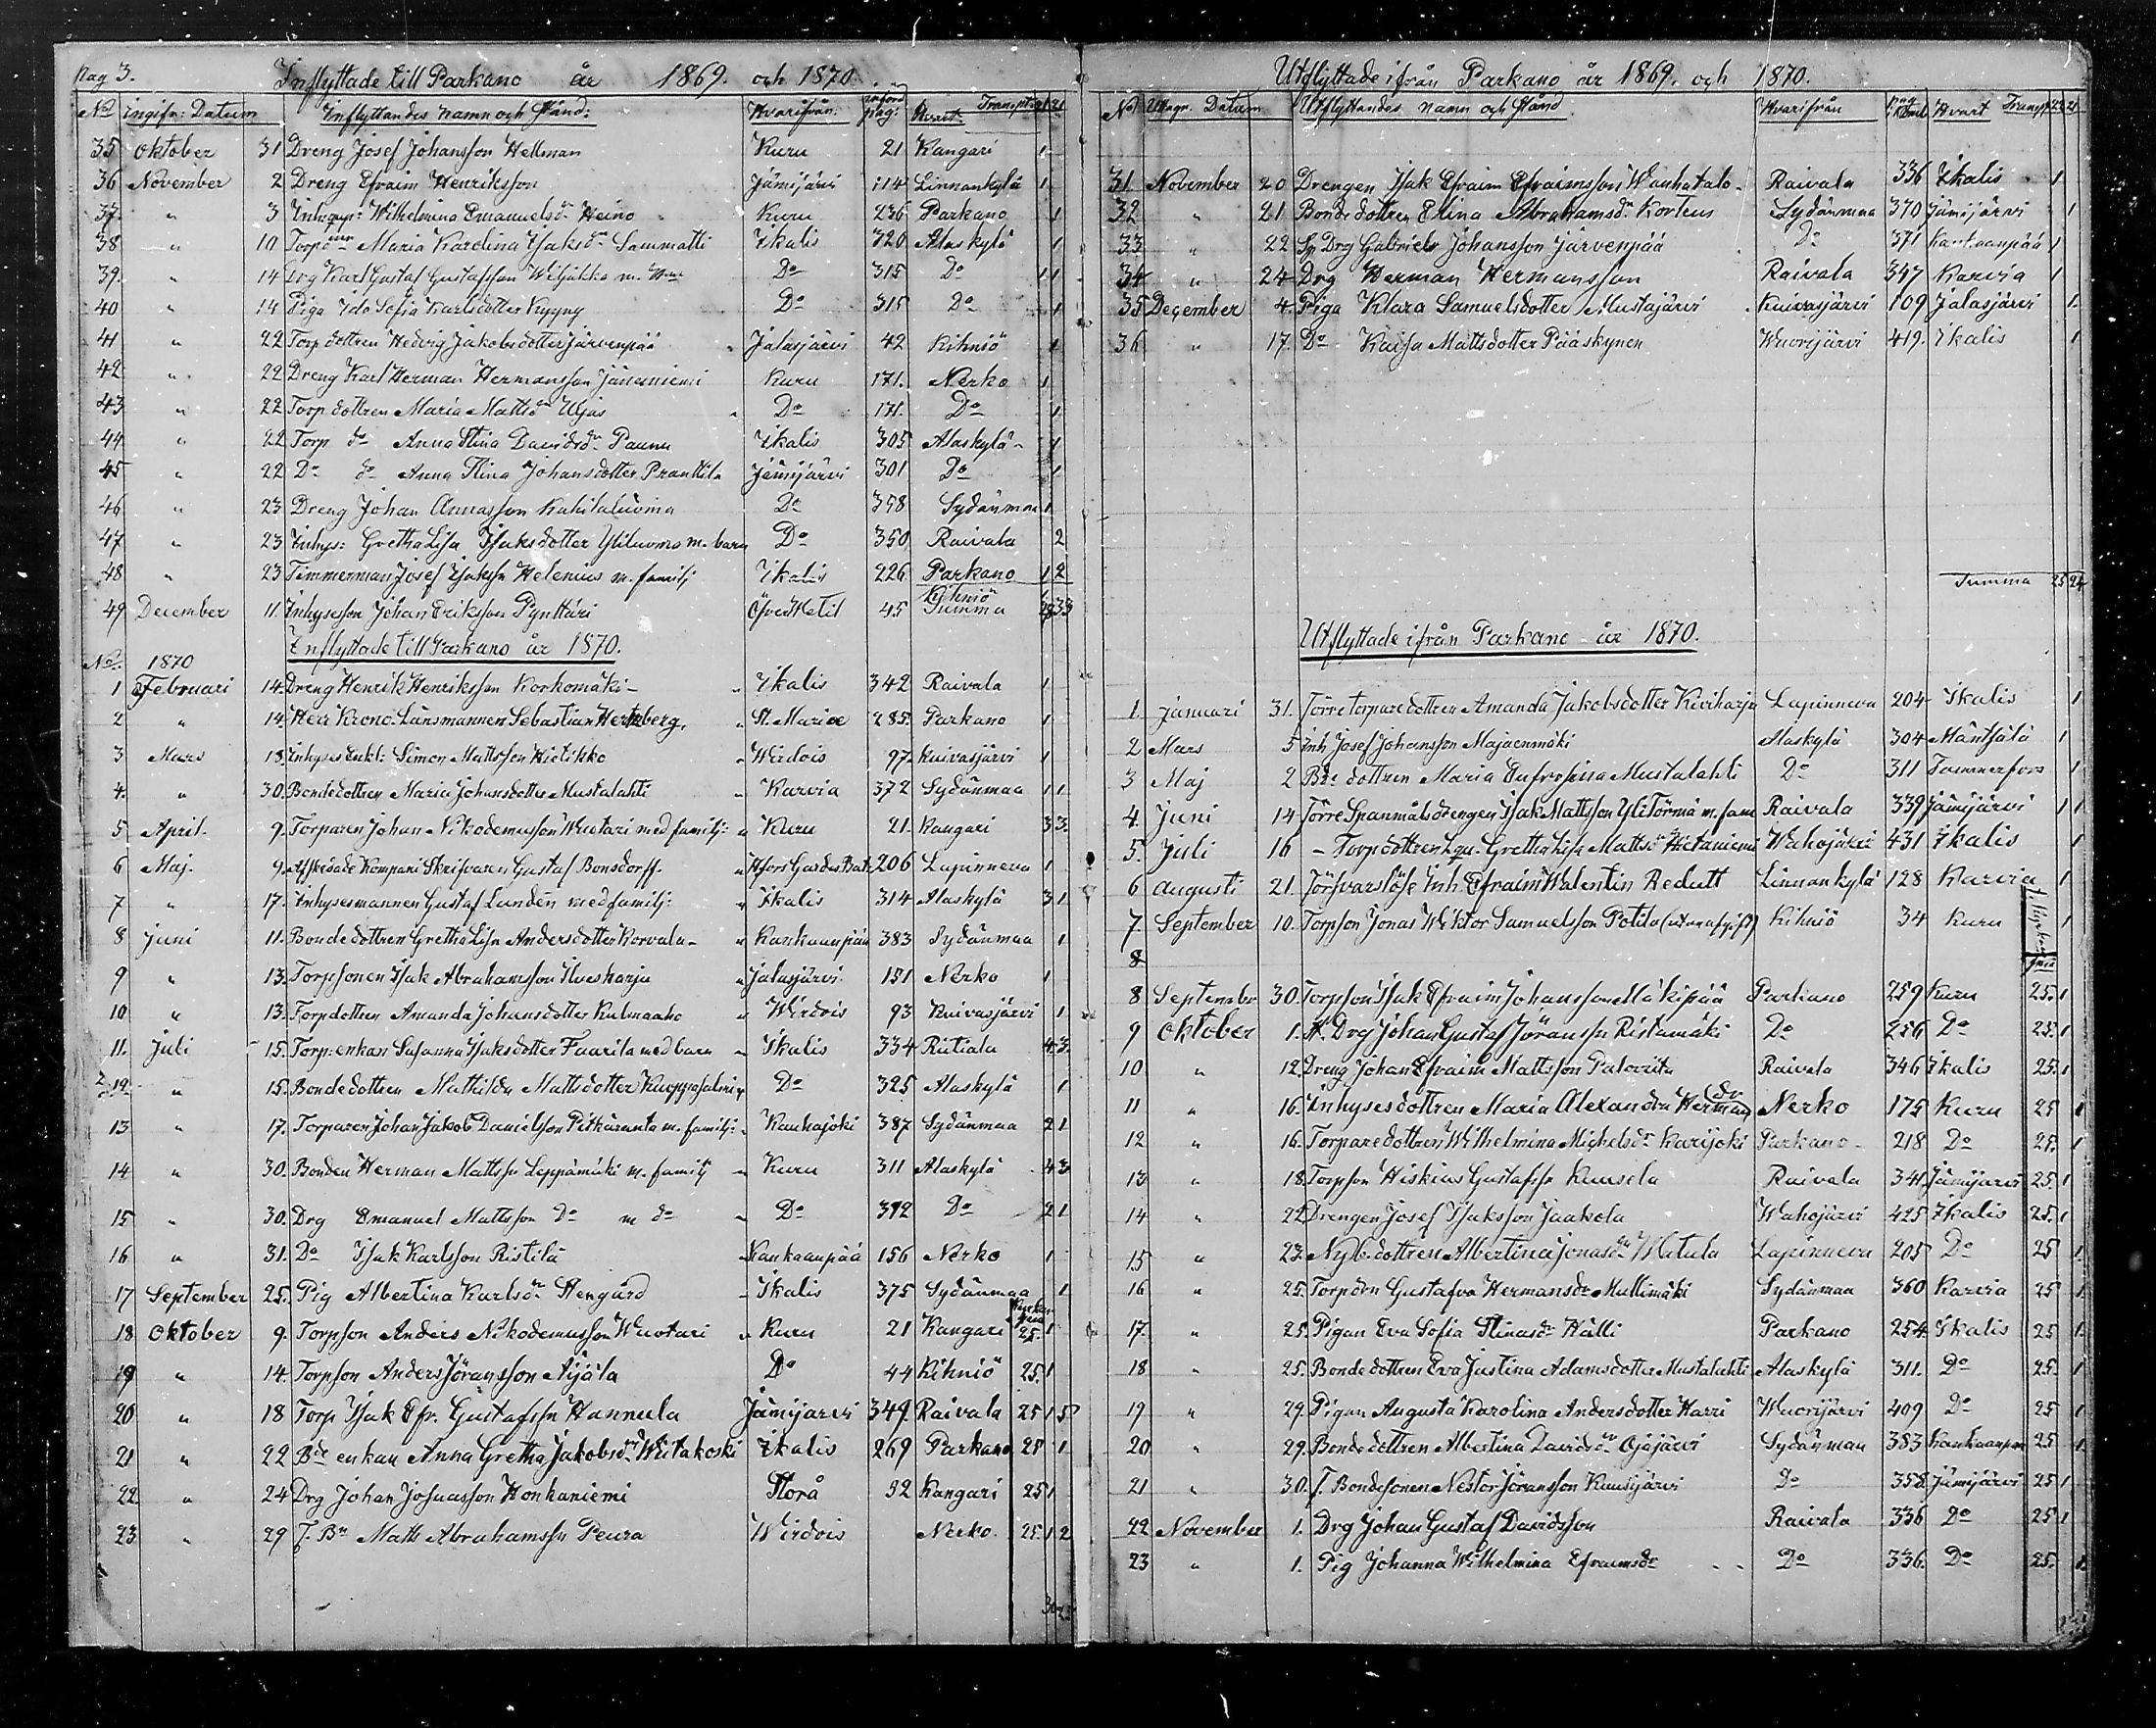 Pag 3. Inflyttade till Parkano år 1869. och 1870.
No ingifn: Datum Inflyttandes namn och stånd: Hvarifrån: pag: Hvart: Transport 26 21
35 Oktober 31 Dreng Josef Johansson Hellman Kuru 21 Kangari 1
36 November 2 Dreng Efraim Henriksson Jämijärvi 114 Linnankylä 1
37 " 3 Wilhelmina Emanuelsdr Heino Kuru 236 Parkano 1
38 " 10 Maria Karolina Isaksdr Sammatti Ikalis 320 Alaskylä 1
39. " 14 Drg Karl Gustaf Gustafsson m. Do 315 Do 1 1
40 " 14 Piga Ida Sofia Karlsdotter Kyyny Do 315 Do 1
41 " 22 Torpdottren Hedvig Jakobsdotter Järvenpää Jalasjärvi 42 Kihniö 1
42 " 22 Dreng Karl Herman Hermansson Jäneniemi Kuru 171. Nerko 1
43 " 22 Torpdottren Maria Mattsdr Ujas Do 171. Do 1
44 " 22 Torp do Anna Stina Davidsdr Paunu Ikalis 305 Alaskylä 1
45 " 22 Do do Anna Stina Johansdotter Pranttila Jämijärvi 301 Do 1
46 " 23 Dreng Johan Annasson Kahilaluoma Do 358 Sydänmaa 1
47 " 23 Inhys: Gretha Lisa Isaksdotter Yliluoma m. barn Do 350 Raivala 2
48 " 23 Timmerman Josef Isaksson Helenius m. familj Ikalis 226 Parkano 1 2
49 December 11. Inhyseson Johan Eriksson Pynttäri Öfver Wetil 45 Kihniö 1
Summa 28 33
Inflyttade till Parkano år 1870.
No. 1870
1 Februari 14. Dreng Henrik Henriksson Korkomäki Ikalis 342 Raivala 1
2 " 14. Herr Krono Länsmannen Sebastian Hertzberg. St. Mariæ 285. Parkano 1
3 Mars 18. Inhyses enkl: Simon Mattsson Hietikko Wirdois 97. Kuivasjärvi 1
4. " 30. Bondedottren Maria Johansdotter Mustalahti Karvia 372 Sydänmaa 1 1
5 April. 9. Torparen Johan Nikodemusson Wuotari med familj: Kuru 21. Kangari 3 3.
6 Maj. 9. Afskedade Kompani Skrifvaren Gustaf Bonsdorff. Hfors Gardes Bat: 206 Lapinneva 1
7 " 17. Inhysesmannen Gustaf Lundén med familj: Ikalis 314 Alaskylä 3 1
8 Juni 11. Bondedottren Gretha Lisa Andersdotter Korvala Kankaanpää 383 Sydänmaa 1
9 " 13. Torpsonen Isak Abrahamsson Ilvesharju Jalasjärvi 151 Nerko 1
10 " 13. Torpdottren Amanda Johansdotter Kulmaaho Wirdois 93 Kuivasjärvi 1
11. Juli 15. Torp:enkan Susanna Isaksdotter Faarila med barn Ikalis 334 Riitiala 4 3.
12. " 15. Bondedottren Mathilda Mattsdotter Kuoppasalmi Do 325 Alaskylä 1
13 " 17. Torparen Johan Jakob Danielsson Pitkäranta m. familj: Kauhajoki 387 Sydänmaa 2 1
14 " 30. Bonden Herman Mattsson Leppämäki m. familj Kuru 311 Alaskylä 4 3
15 " 30. Drg Emanuel Mattsson Do m do Do 312 Do 2 1
16 " 31. Do Isak Karlsson Ristilä Kankaanpää 156 Nerko 1
17 September 25. Pig Albertina Karlsdr Stengård Ikalis 375 Sydänmaa 1
18 Oktober 9. Torpson Anders Nikodemusson Wuotari Kuru 21 Kangari 25. 1
19 " 14. Torpson Anders Jöransson Äijälä Do 44 Kihniö 25. 1
20 " 18 Torp Isak Efr. Gustafsson Hannula Jämijärvi 349. Raivala 25 1 5
21 " 22 Bde enkan Anna Gretha Jakobsdr Witakoski Ikalis 269 Parkano 25 1
22 " 24 Drg Johan Josuasson Honkaniemi Storå 32 Kangari 25 1
23 " 29 T. Bn Matts Abrahamsson Peura Wirdois Nerko. 25 1 2
30 25
Utflyttade ifrån Parkano år 1869. och 1870.
No Uttagn. Datum Utflyttandes namn och stånd Hvarifrån Hvart Transp 22 21
31 November 20 Drengen Isak Efraim Efraimsson Wanhatalo Raivala 336 Ikalis 1
32 " 21 Bondedottren Elina Abrahamsdr Korteus Sydänmaa 370 Jämijärvi 1
33 " 22 Drg Gabriel Johansson Järvenpää Do 371 Kankaanpää 1
34 " 24 Drg Herman Hermansson Raivala 347 Karvia 1
35 December 4. Piga Klara Samuelsdotter Mustajärvi Kuivasjärvi 109 Jalasjärvi 1
36 " 17. Do Kaisa Mattsdotter Pääskynen Wuorijärvi 419. Ikalis 1
Summa 25 24
Utflyttade ifrån Parkano år 1870.
1. Januari 31. Förre torparedottren Amanda Jakobsdotter Kiviharju Lapinneva 204 Ikalis 1
2 Mars 5 Inh Josef Johansson Majaenmäki Alaskylä 304 Mäntsälä 1
3 Maj 2 Bde dottren Maria Eufrosina Mustalahti Do 311 Tammerfors 1
4. Juni 14 Förre Spanmålsdrengen Isak Mattsson Yli Törmä m. fam Raivala 339 Jämijärvi 1 1
5. Juli 16 Torpdottren Gretha Lisa Mattsdr Hietaniemi Wahojärvi 431 Ikalis 1
6 Augusti 21. Försvarslöse Inh. Efraim Walentin Redutt Linnankylä 128 Karvia 1
7. September 10. Torpson Jonas Wiktor Samuelsson Potila (utan afgift) Kihniö 34 Kuru 1
8
8 September 30. Torpson Isak Efraim Johansson Mäkipää Parkano 259 Kuru 25. 1
9 Oktober 1. Drg Johan Gustaf Jöransson Ristamäki Do 256 Do 25. 1
10 " 12. Dreng Johan Efraim Mattsson Palovita Raivala 346 Ikalis 25. 1
11 " 16. Inhysesdottren Maria Alexandra Hermansdr Nerko 175 Kuru 25 1
12 " 16. Torparedottren Wilhelmina Michelsdr Karijoki Parkano 218 Do 25. 1
13 " 18. Torpson Hiskias Gustafsson Kuusela Raivala 341. Jämijärvi 25. 1
14 " 22. Drengen Josef Isaksson Jaakola Wahojärvi 425 Ikalis 25. 1
15 " 23. Nyb. dottren Albertina Jonasdr Matala Lapinneva 205 Do 25 1
16 " 25. Torpdrn Gustafva Hermansdr Mullimäki Sydänmaa 360 Karvia 25 1
17. " 25. Pigan Eva Sofia Stinasdr Hälli Parkano 254 Ikalis 25 1
18 " 25. Bondedottren Eva Justina Adamsdotter Mustalahti Alaskylä 311. Do 25. 1
19 " 29. Pigan Augusta Karolina Andersdotter Harri Wuorijärvi 409 Do 25 1
20 " 29. Bondedottren Albertina Davidsdr Ojajärvi Sydänmaa 383 Kankaanpää 25 1
21 " 30. T. Bondesonen Nestor Jöransson Kuusijärvi Do 358. Jämijärvi 25 1
22 November 1. Drg Johan Gustaf Davidsson Raivala 336 Do 25 1
23 " 1. Pig Johanna Wilhelmina Efraimsdr Do 336. Do 25. 1